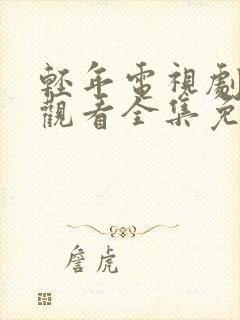 輕年電視劇
觀看全集免
詹虎